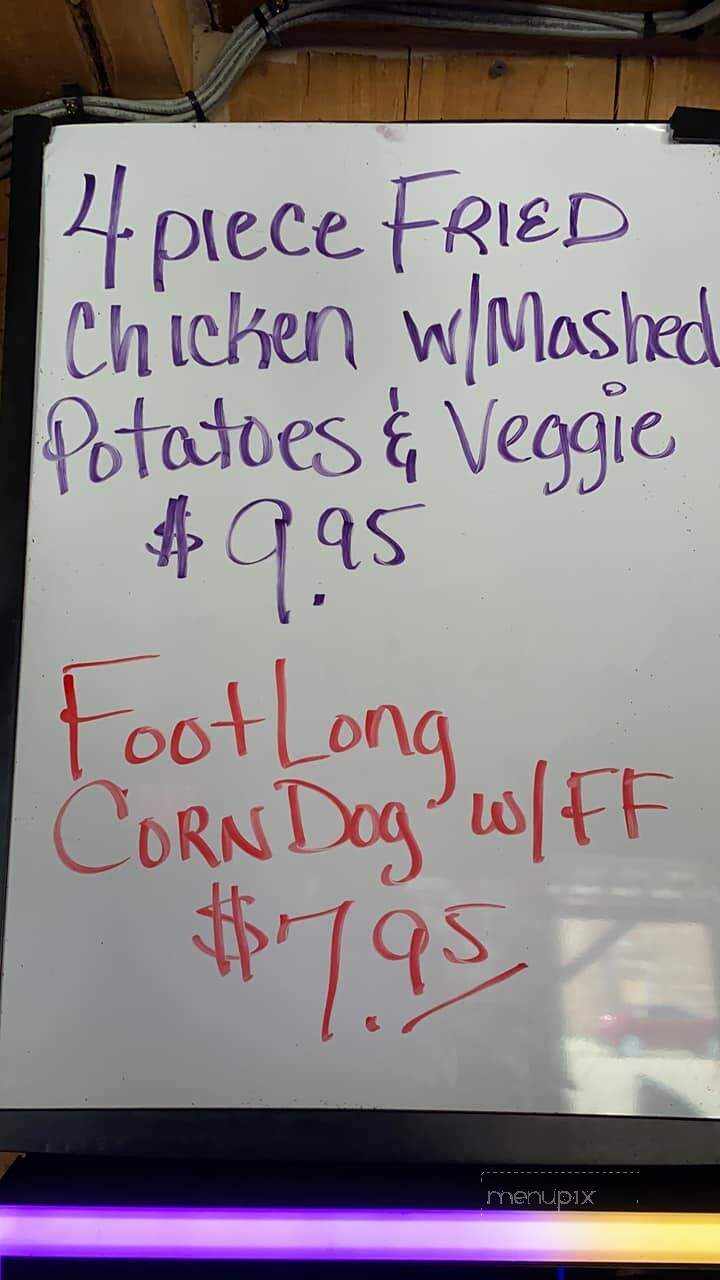 4 piece FRIED
Chicken w/Mashed
Potatoes & Veggie
$9.95
Foot Long
CORN Dog w/FF
$7.95
menupix